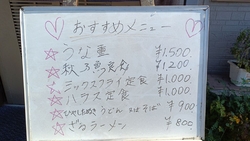 おすすめメニュー
うな重 ¥1,500
秋 ¥1,200
ミックスフライ定食 ¥1,000
ハラス定食 ¥1,000
ひやしたぬき うどん そば ¥900
ざるラーメン ¥800